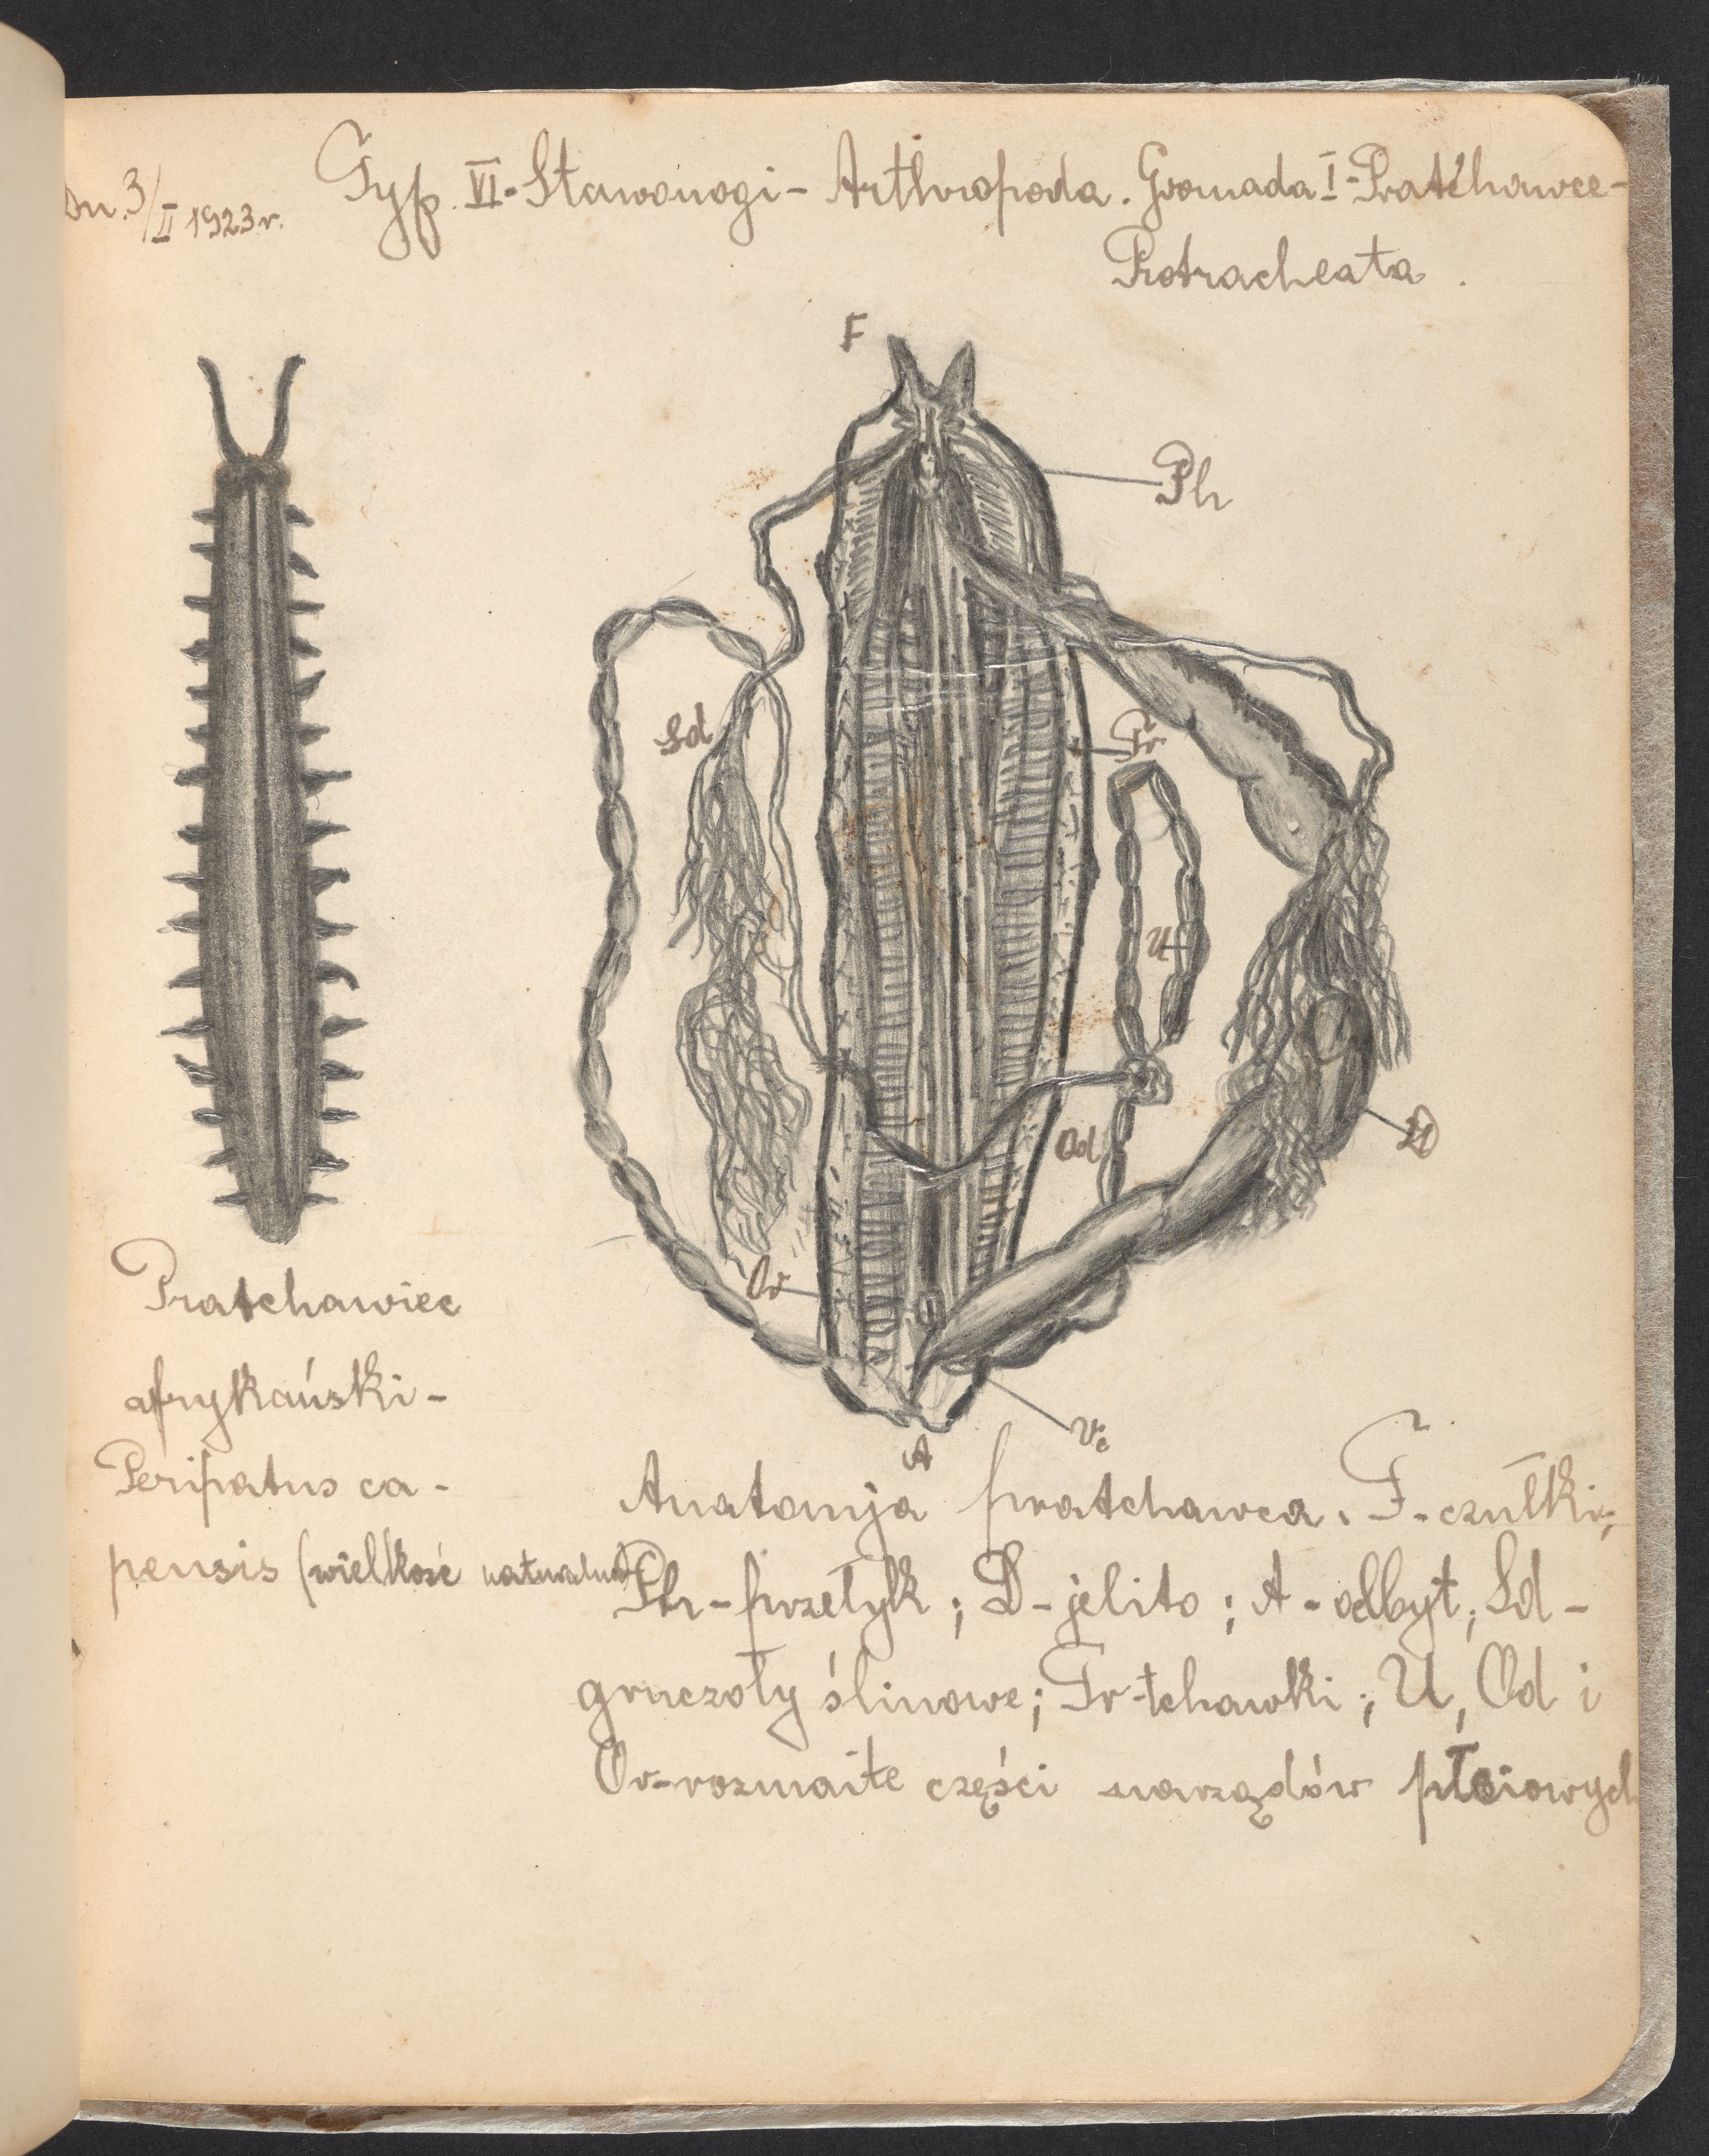 Dn. 3/II 1923 r.
Typ. VI - Stawonogi - Arthropoda. Gromada I - Pratchawce -
Protracheata.
F
Ph
Sd
Tr
U
D
Od
Ov
Ve
A
Pratchawiec
afrykański -
Peripatus ca -
pensis (wielkość naturalna)
Anatomja pratchawca. F. czułki;
Ph - przełyk; D - jelito; A - odbyt; Sd -
gruczoły ślinowe; Tr - tchawki; U, Od i
Ov - rozmaite części narządów płciowych